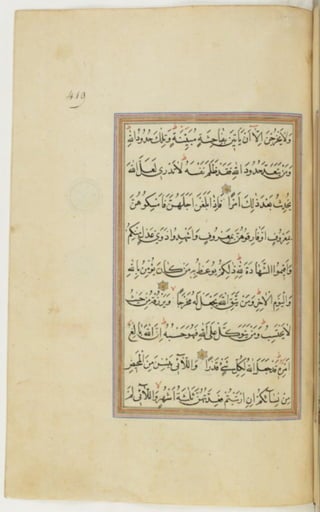 419
وَلَا يَخْرُجْنَ إِلَّا أَنْ يَأْتِينَ بِفَاحِشَةٍ مُبَيِّنَةٍ وَتِلْكَ حُدُودُ اللهِ
وَمَنْ يَتَعَدَّ حُدُودَ اللهِ فَقَدْ ظَلَمَ نَفْسَهُ لَا تَدْرِي لَعَلَّ اللهَ
يُحْدِثُ بَعْدَ ذَلِكَ أَمْرًا فَإِذَا بَلَغْنَ أَجَلَهُنَّ فَأَمْسِكُوهُنَّ
بِمَعْرُوفٍ أَوْ فَارِقُوهُنَّ بِمَعْرُوفٍ وَأَشْهِدُوا ذَوَيْ عَدْلٍ مِنْكُمْ
وَأَقِيمُوا الشَّهَادَةَ لِلهِ ذَلِكُمْ يُوعَظُ بِهِ مَنْ كَانَ يُؤْمِنُ بِاللهِ
وَالْيَوْمِ الْآخِرِ وَمَنْ يَتَّقِ اللهَ يَجْعَلْ لَهُ مَخْرَجًا وَيَرْزُقْهُ مِنْ حَيْثُ
لَا يَحْتَسِبُ وَمَنْ يَتَوَكَّلْ عَلَى اللهِ فَهُوَ حَسْبُهُ إِنَّ اللهَ بَالِغُ
أَمْرِهِ قَدْ جَعَلَ اللهُ لِكُلِّ شَيْءٍ قَدْرًا وَاللَّائِي يَئِسْنَ مِنَ الْمَحِيضِ
مِنْ نِسَائِكُمْ إِنِ ارْتَبْتُمْ فَعِدَّتُهُنَّ ثَلَثَةُ أَشْهُرٍ وَاللَّائِي لَمْ